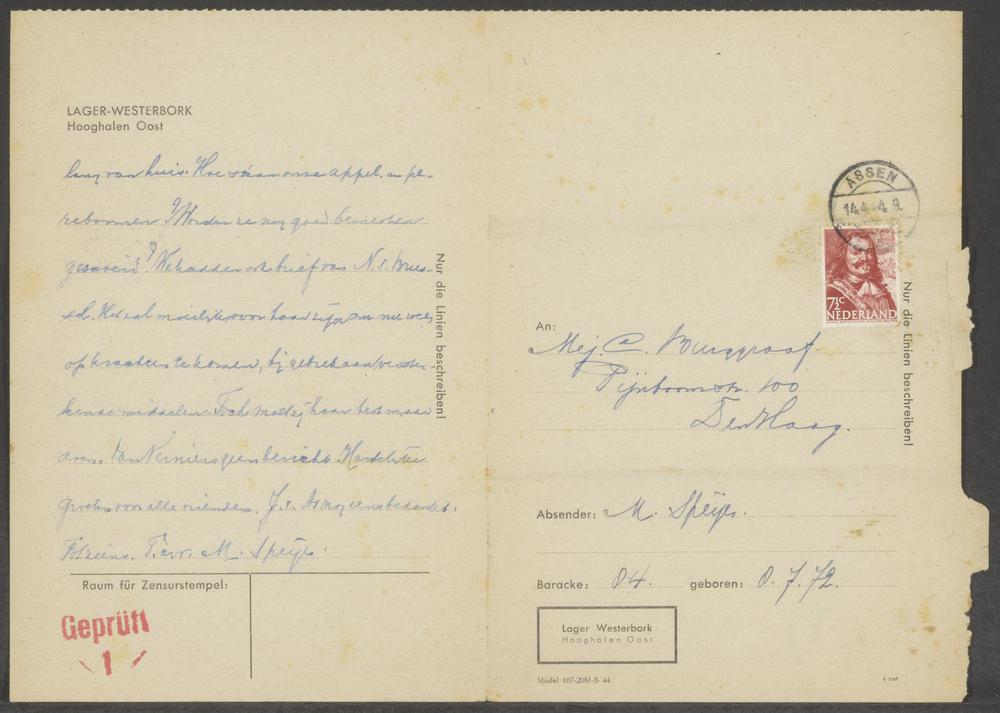 LAGER-WESTERBORK
Hooghalen Oost
lang van huis. Hoe staan onze appel- en pe-
rebomen? Worden ze nog goed bemest en
gesnoeid? We hadden ook brief van N. v.
Het zal moeilijk voor haar zijn om nu weer
op krachten te komen, bij gebrek aan verster-
kende middelen. Toch moet zij haar best maar
doen. Van geen bericht. Hartelijke
groeten voor alle vrienden. J. v. A. nog eens bedankt.
Tot ziens. T. à v. M. Speijer.
Nur die Linien beschreiben!
Raum für Zensurstempel:
Geprüft
1
ASSEN
7½ C
NEDERLAND
Nur die Linien beschreiben!
An: Mej. C. Burggraaf.
Pijnboomstr. 100
Den Haag.
Absender: M. Speijer.
Baracke: 84. geboren: 8.7.72.
Lager Westerbork
Hooghalen Oost
Model 467-20M-8-'44